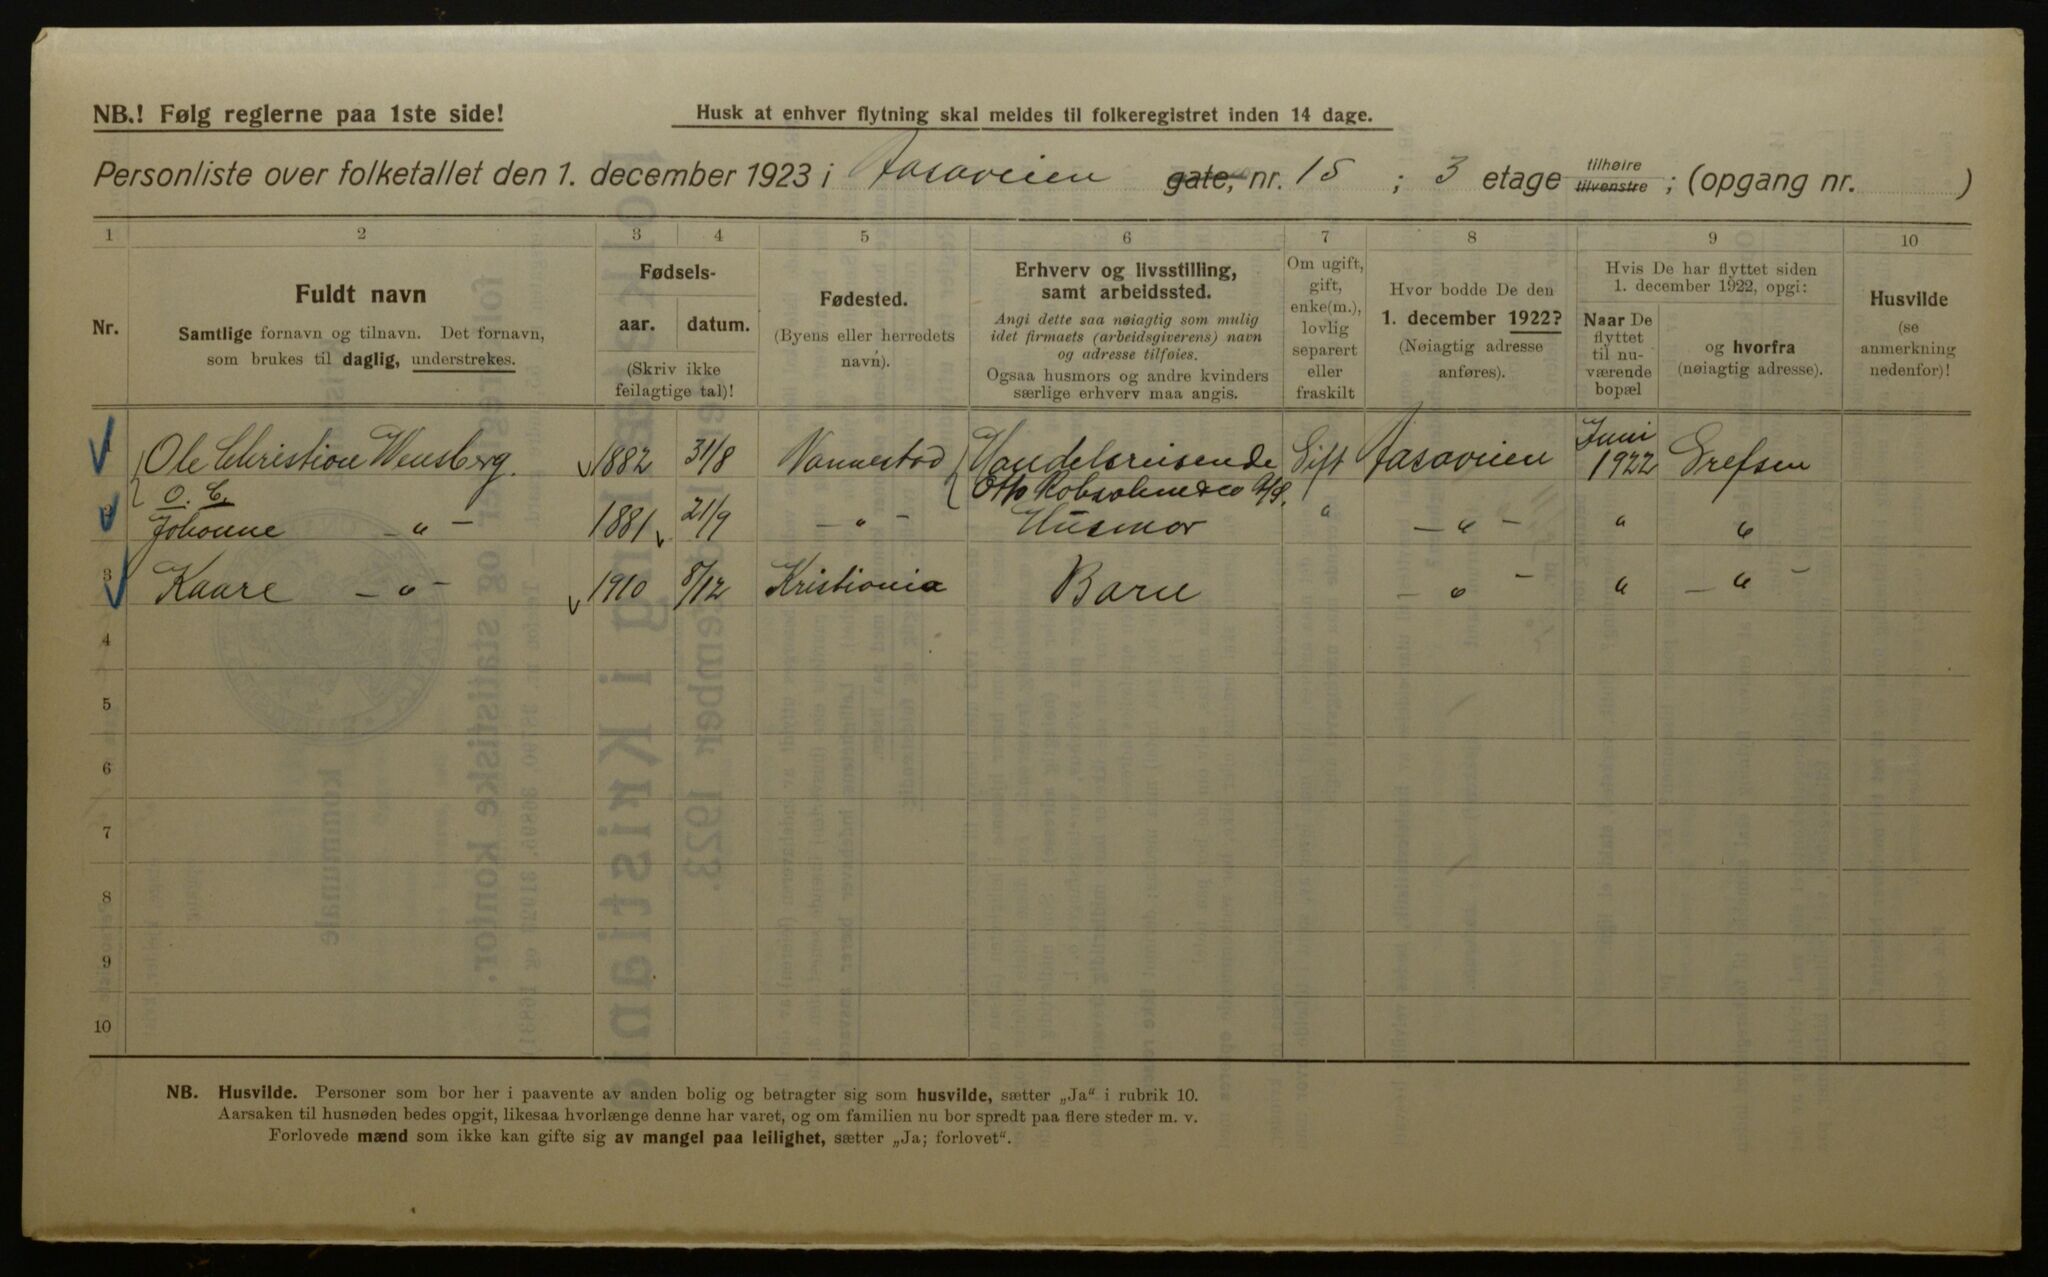 NB.! Følg reglerne paa 1ste side!
Husk at enhver flytning skal meldes til folkeregistret inden 14 dage.
Personliste over folketallet den 1. december 1923 i Aasaveien gate, nr. 15 ; 3 etage tilhøire tilvenstre ; (opgang nr. )
1 2 3 4 5 6 7 8 9 10
Nr.
Fuldt navn
Samtlige fornavn og tilnavn. Det fornavn,
som brukes til daglig, understrekes.
Fødsels-
aar. datum.
(Skriv ikke
feilagtige tal)!
Fødested.
(Byens eller herredets
navn).
Erhverv og livsstilling,
samt arbeidssted.
Angi dette saa nøiagtig som mulig
idet firmaets (arbeidsgiverens) navn
og adresse tilføies.
Ogsaa husmors og andre kvinders
særlige erhverv maa angis.
Om ugift,
gift,
enke(m.),
lovlig
separert
eller
fraskilt
Hvor bodde De den
1. december 1922?
(Nøiagtig adresse
anføres).
Hvis De har flyttet siden
1. december 1922, opgi:
Naar De
flyttet
til nu-
værende
bopæl
og hvorfra
(nøiagtig adresse).
Husvilde
(se
anmerkning
nedenfor)!
1 Ole Christian Wensberg. 1882 31/8 Vannestad Handelsreisende Gift Aasaveien Juni 1922 Grefsen
O. C. Otto A/S.
2 Johanne — „ — 1881 21/9 — „ — Husmor „ — „ — „ „
3 Kaare — „ — 1910 8/12 Kristiania Barn — „ — „ — „ —
4
5
6
7
8
9
10
NB. Husvilde. Personer som bor her i paavente av anden bolig og betragter sig som husvilde, sætter „Ja“ i rubrik 10.
Aarsaken til husnøden bedes opgit, likesaa hvorlænge denne har varet, og om familien nu bor spredt paa flere steder m. v.
Forlovede mænd som ikke kan gifte sig av mangel paa leilighet, sætter „Ja; forlovet“.